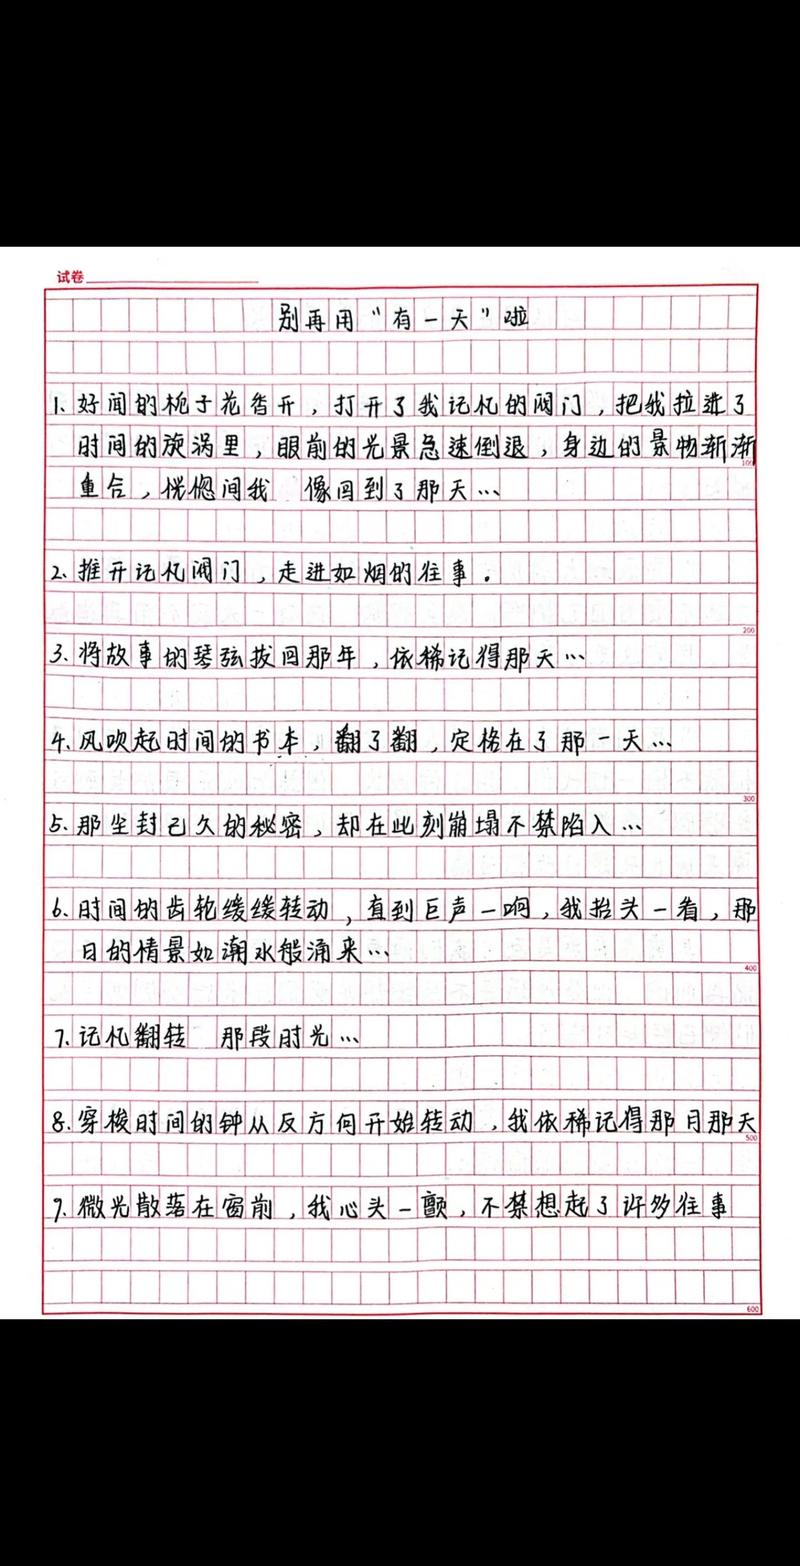 试卷
别再用“有一天”啦
1.好闻的栀子花香开，打开了我记忆的阀门，把我拉进了
时间的旋涡里，眼前的光景急速倒退，身边的景物渐渐
100
重合，恍惚间我 像回到了那天…
2.推开记忆阀门，走进如烟的往事。
200
3.将故事的琴弦拔回那年，依稀记得那天…
4.风吹起时间的书本，翻了翻，定格在了那一天…
300
5.那尘封已久的秘密，却在此刻崩塌不禁陷入…
6.时间的齿轮缓缓转动，直到巨声一响，我抬头一看，那
日的情景如潮水般涌来…
400
7.记忆翻转 那段时光…
8.穿梭时间的钟从反方向开始转动，我依稀记得那月那天
500
9.微光散落在窗前，我心头一颤，不禁想起了许多往事
600